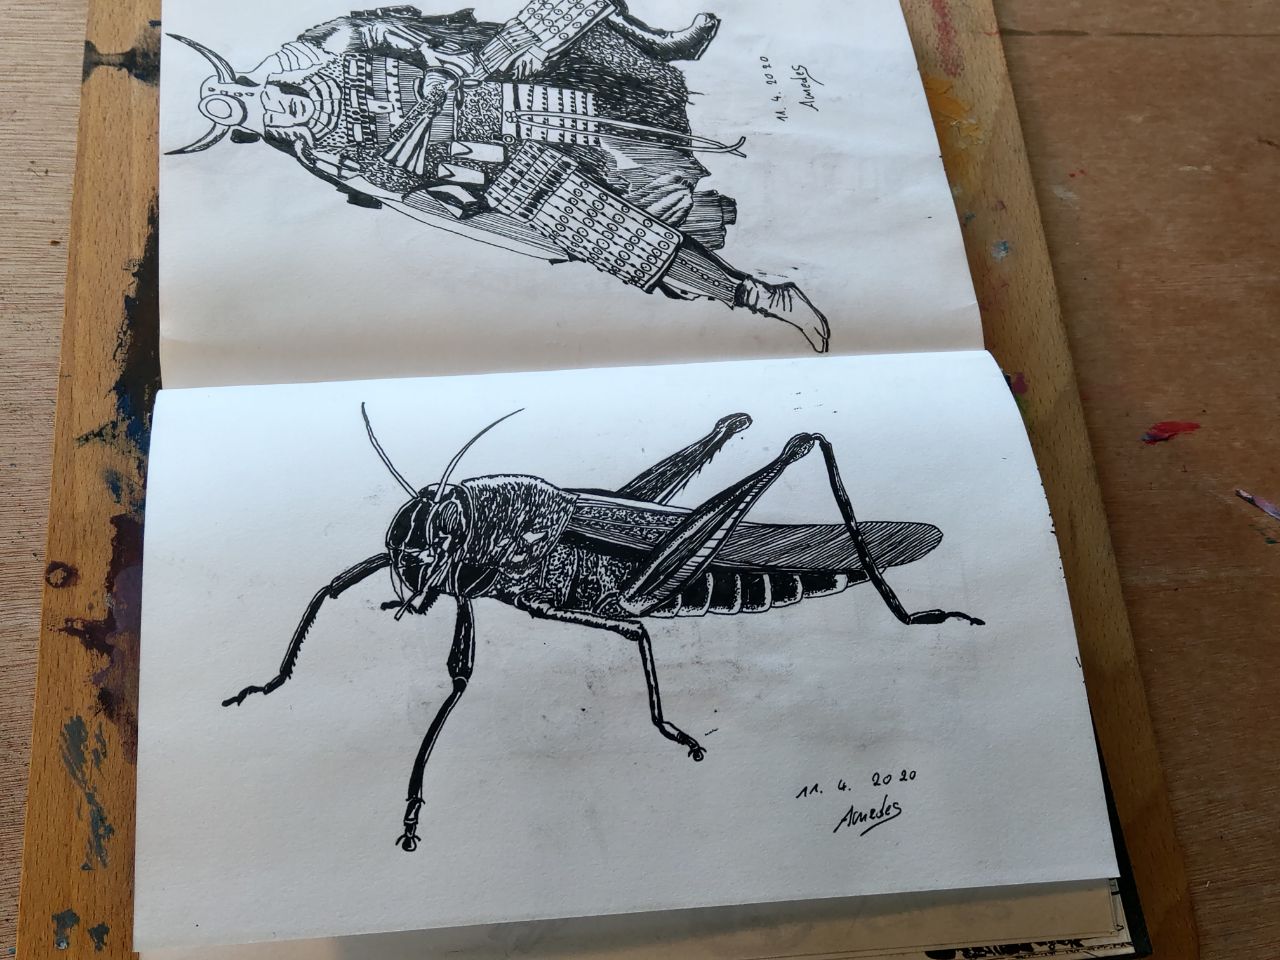 11. 4. 2020
Amedes
11. 4. 2020
Amedes